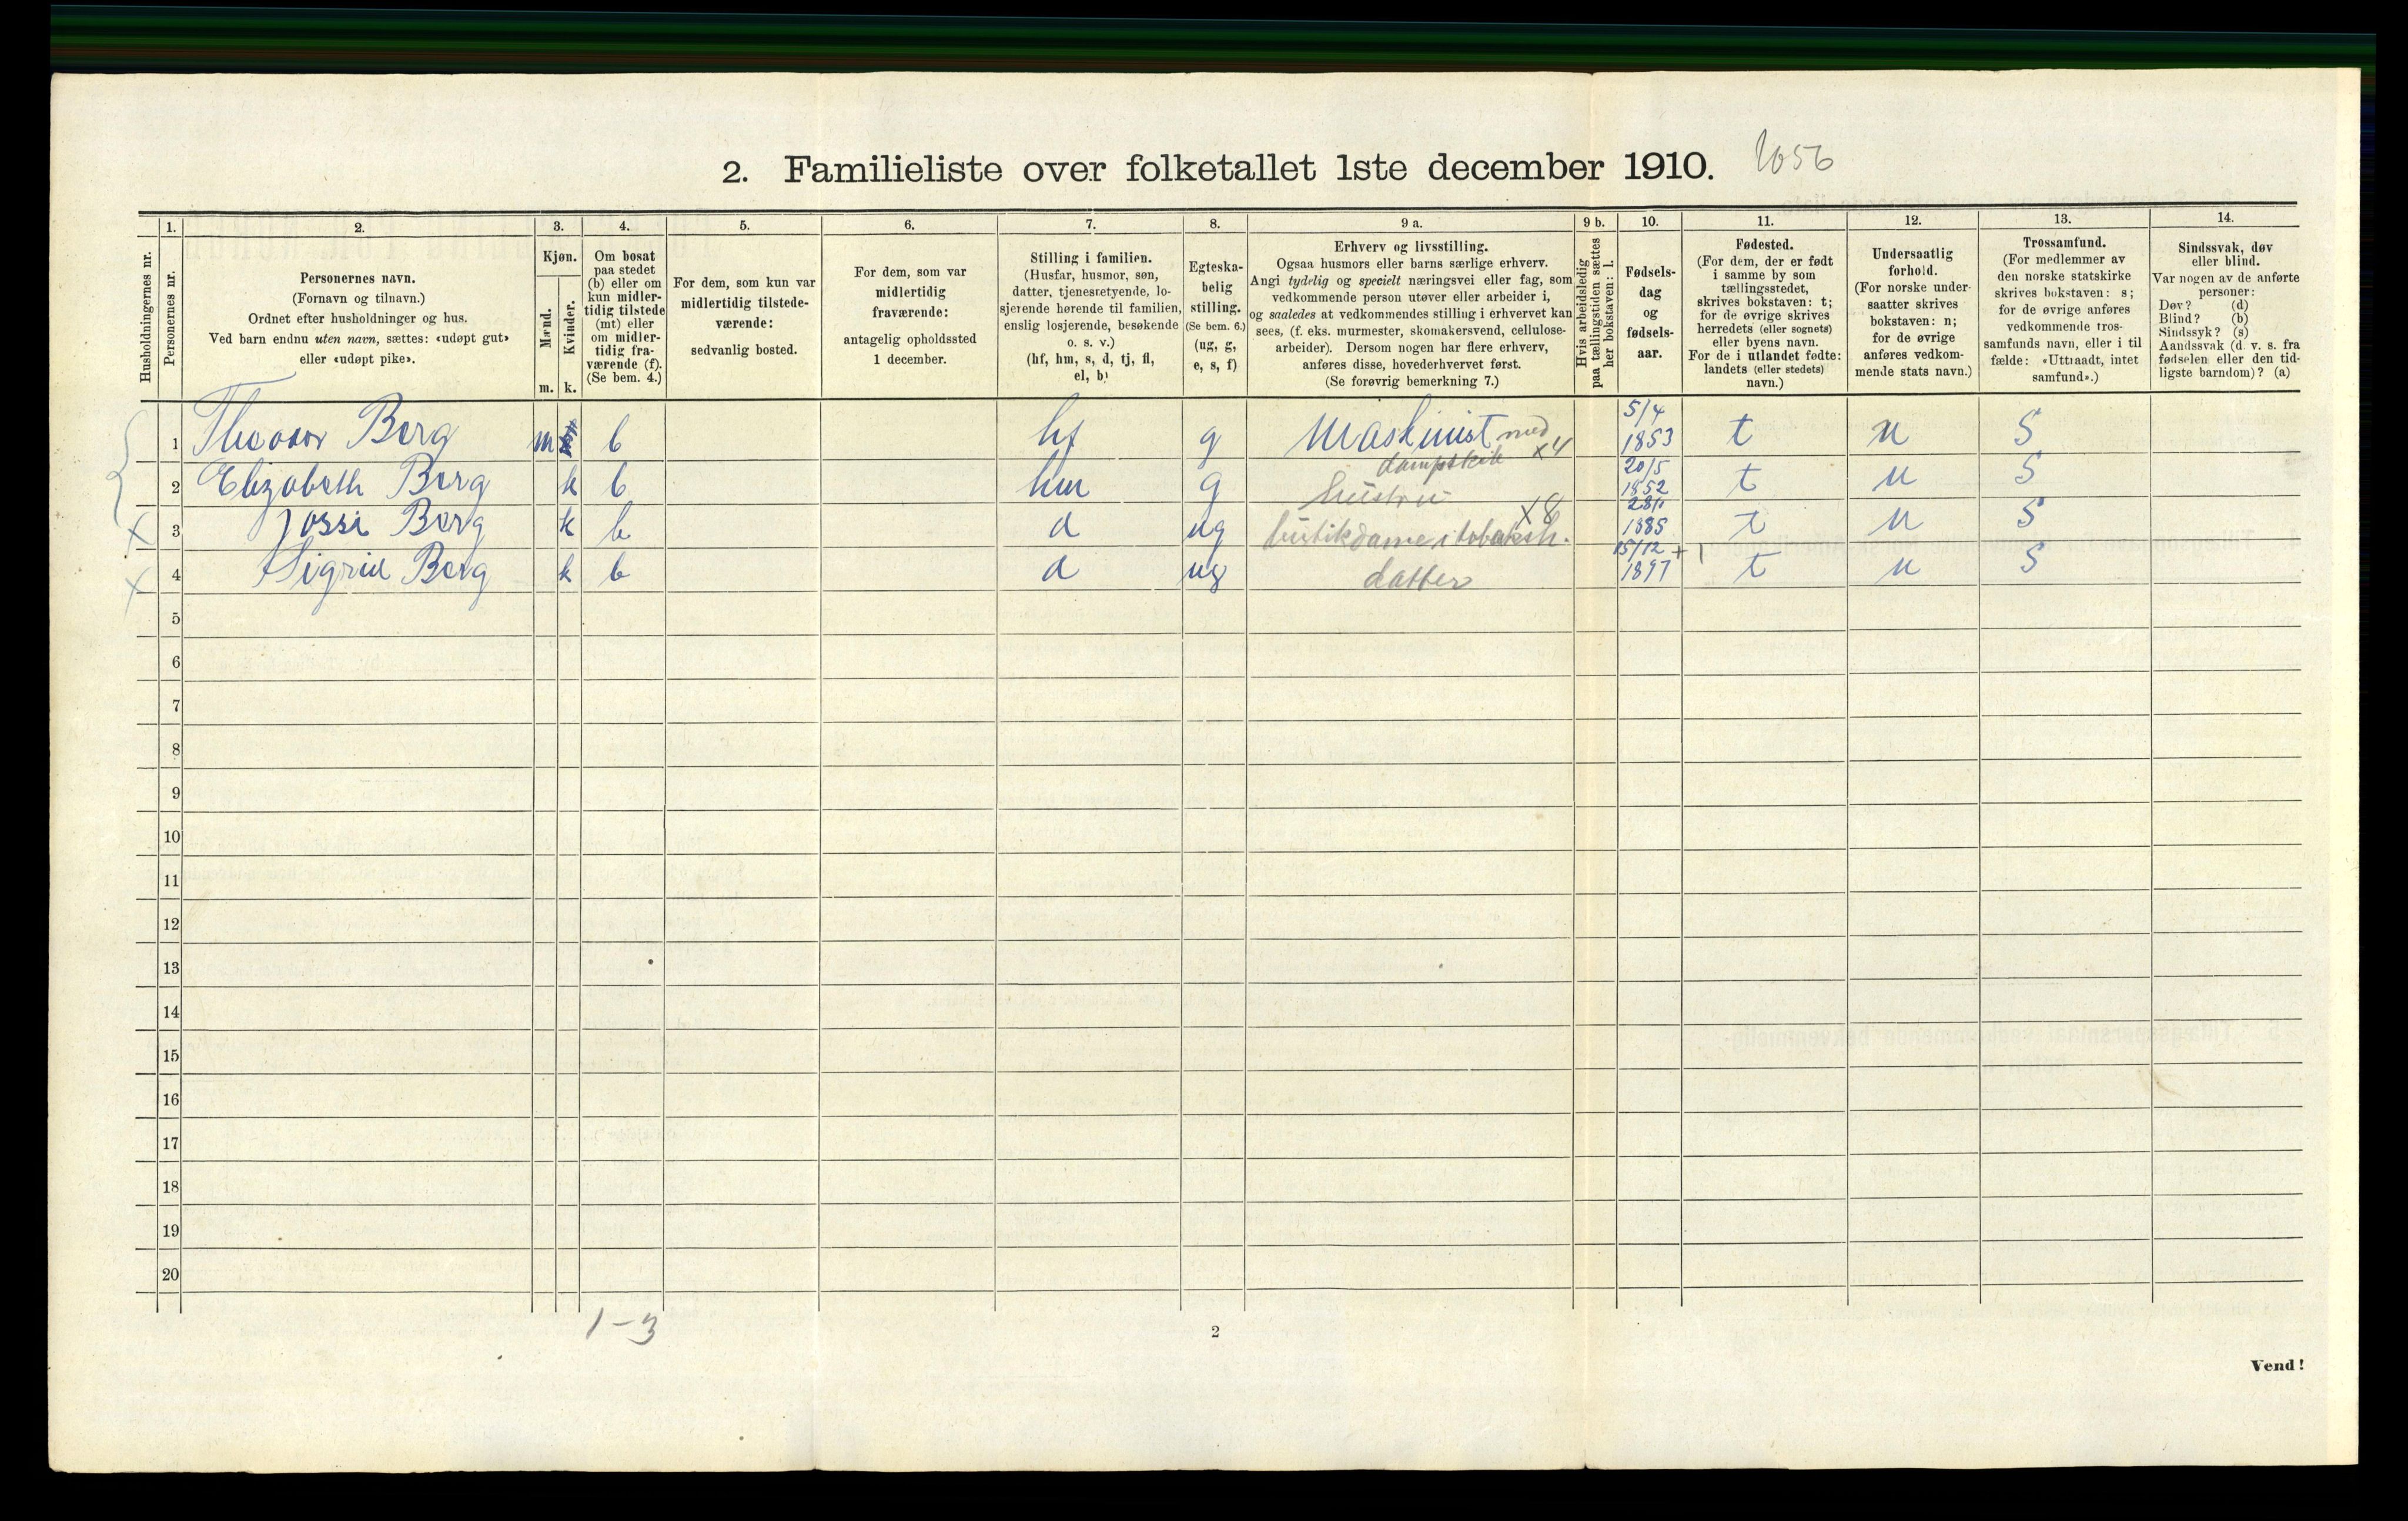 2. Familieliste over folketallet 1ste december 1910. 1056
Husholdningernes nr.
1. Personernes nr.
2. Personernes navn.
(Fornavn og tilnavn.)
Ordnet efter husholdninger og hus.
Ved barn endnu uten navn, sættes: «udøpt gut»
eller «udøpt pike».
3. Kjøn.
Mænd. m.
Kvinder. k.
4. Om bosat
paa stedet
(b) eller om
kun midler-
tidig tilstede
(mt) eller
om midler-
tidig fra-
værende (f).
(Se bem. 4.)
5. For dem, som kun var
midlertidig tilstede-
værende:
sedvanlig bosted.
6. For dem, som var
midlertidig
fraværende:
antagelig opholdssted
1 december.
7. Stilling i familien.
(Husfar, husmor, søn,
datter, tjenestetyende, lo-
sjerende hørende til familien,
enslig losjerende, besøkende
o. s. v.)
(hf, hm, s, d, tj, fl,
el, b)
8. Egteska-
belig
stilling.
(Se bem. 6.)
(ug, g,
e, s, f)
9 a. Erhverv og livsstilling.
Ogsaa husmors eller barns særlige erhverv.
Angi tydelig og specielt næringsvei eller fag, som
vedkommende person utøver eller arbeider i,
og saaledes at vedkommendes stilling i erhvervet kan
sees, (f. eks. murmester, skomakersvend, cellulose-
arbeider). Dersom nogen har flere erhverv,
anføres disse, hovederhvervet først.
(Se forøvrig bemerkning 7.)
9 b. Hvis arbeidsledig
paa tællingstiden sættes
her bokstaven: l.
10. Fødsels-
dag
og
fødsels-
aar.
11. Fødested.
(For dem, der er født
i samme by som
tællingsstedet,
skrives bokstaven: t;
for de øvrige skrives
herredets (eller sognets)
eller byens navn.
For de i utlandet fødte:
landets (eller stedets)
navn.)
12. Undersaatlig
forhold.
(For norske under-
saatter skrives
bokstaven: n;
for de øvrige
anføres vedkom-
mende stats navn.)
13. Trossamfund.
(For medlemmer av
den norske statskirke
skrives bokstaven: s;
for de øvrige anføres
vedkommende tros-
samfunds navn, eller i til
fælde: «Uttraadt, intet
samfund».)
14. Sindssvak, døv
eller blind.
Var nogen av de anførte
personer:
Døv? (d)
Blind? (b)
Sindssyk? (s)
Aandssvak (d. v. s. fra
fødselen eller den tid-
ligste barndom)? (a)
1 Berg m b hf g Maskinist med dampskib x4 5/4 1853 t n S
2 Elizabeth Berg k b hm g hustru 20/5 1852 t n S
x 3 Jossi Berg k b d ug butikdame i tobaksh. x8 28/1 1885 t n S
x 4 Sigrid Berg k b d ug datter 15/12 1897 + 1 t n S
5
6
7
8
9
10
11
12
13
14
15
16
17
18
19
20
1-3
2
Vend!